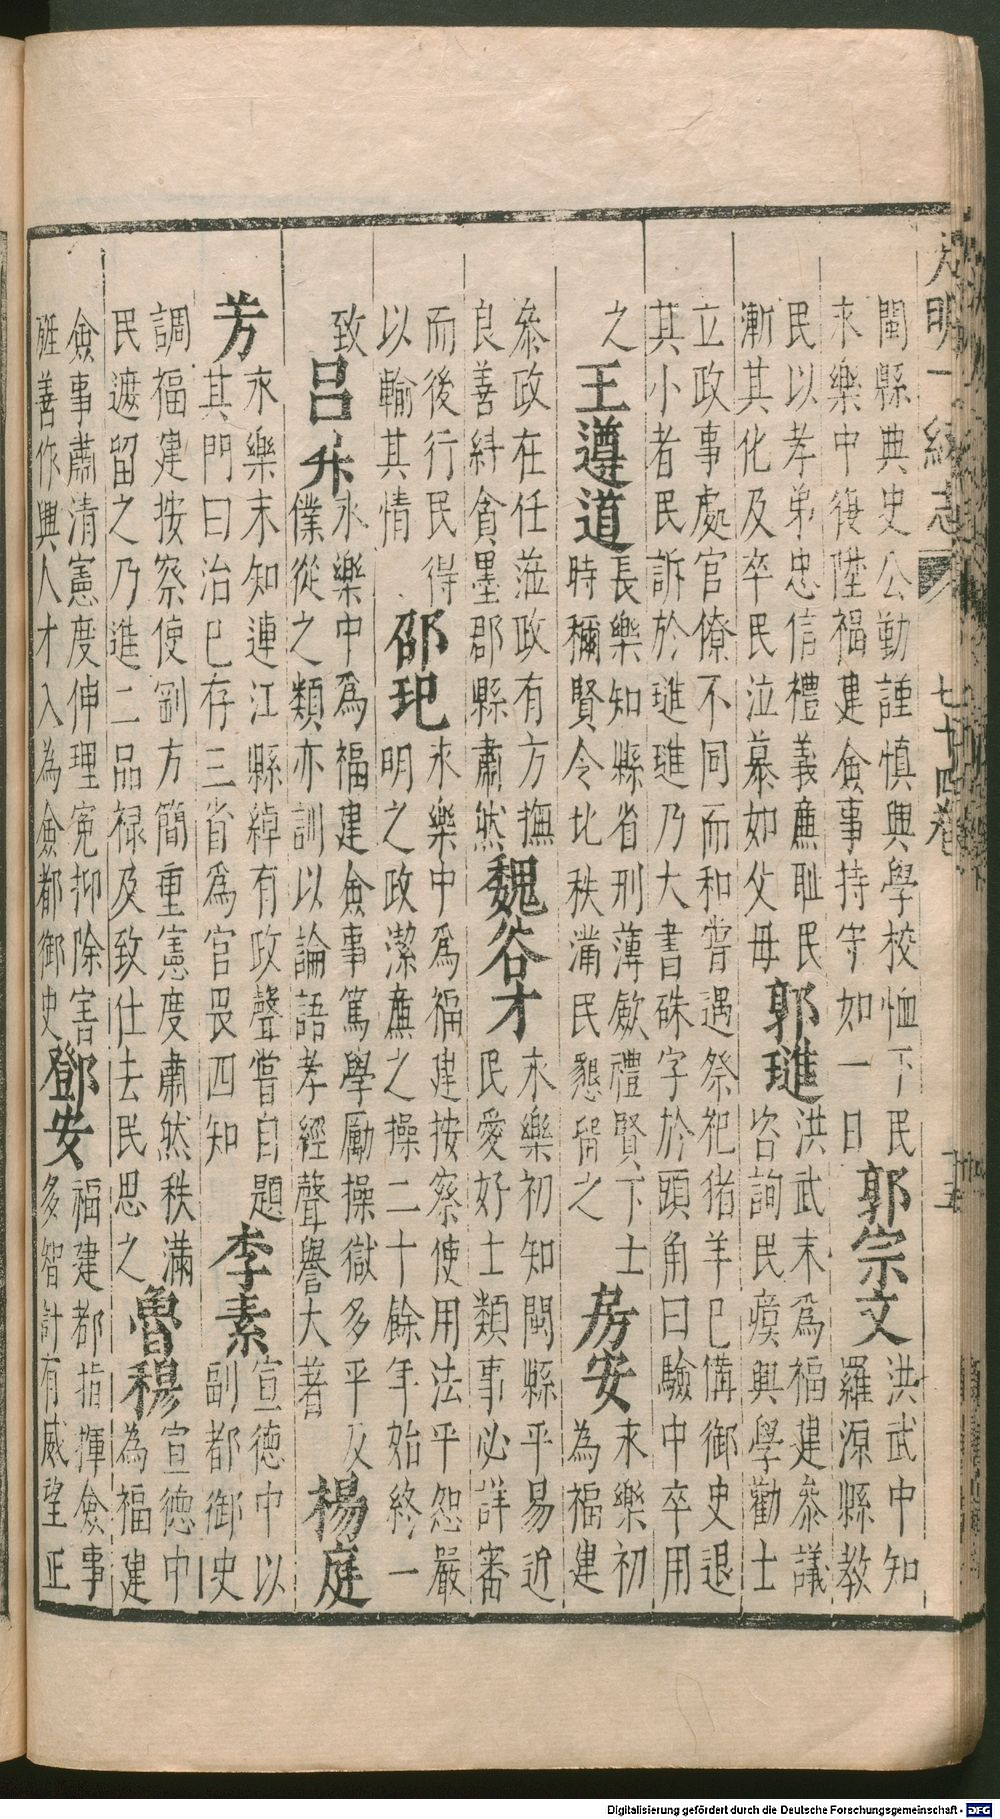 大明一統志
七十四卷
十五
閩縣典史公勤謹慎興學校恤下民
永樂中復陞福建僉事持守如一日
郭宗文
洪武中知
羅源縣教
民以孝弟忠信禮義廉耻民
漸其化及卒民泣慕如父母
郭璡
洪武末爲福建叅議
咨詢民瘼興學勸士
立政事處官僚不同而和嘗遇祭祀猪羊巳備御史退
其小者民訴於璡璡乃大書硃字於頭角曰驗中卒用
之
王遵道
長樂知縣省刑薄歛禮賢下士
時稱賢令比秩滿民懇留之
房安
永樂初
為福建
叅政在任蒞政有方撫
良善糾貪墨郡縣肅然
魏谷才
永樂初知閩縣平易近
民愛好士類事必詳審
而後行民得
以輸其情
邵玘
永樂中爲福建按察使用法平恕嚴
明之政潔廉之操二十餘年始終一
致
呂升
永樂中爲福建僉事篤學勵操獄多平反
僕從之類亦訓以論語孝經聲譽大著
楊庭
芳
永樂末知連江縣綽有政聲嘗自題
其門曰治巳存三省爲官畏四知
李素
宣德中以
副都御史
調福建按察使剛方簡重憲度肅然秩滿
民遮留之乃進二品禄及致仕去民思之
魯穆
宣德中
為福建
僉事肅清憲度伸理寃抑除害
旌善作興人才入為僉都御史
鄧安
福建都指揮僉事
多智計有威望正
Digitalisierung gefördert durch die Deutsche Forschungsgemeinschaft - DFG